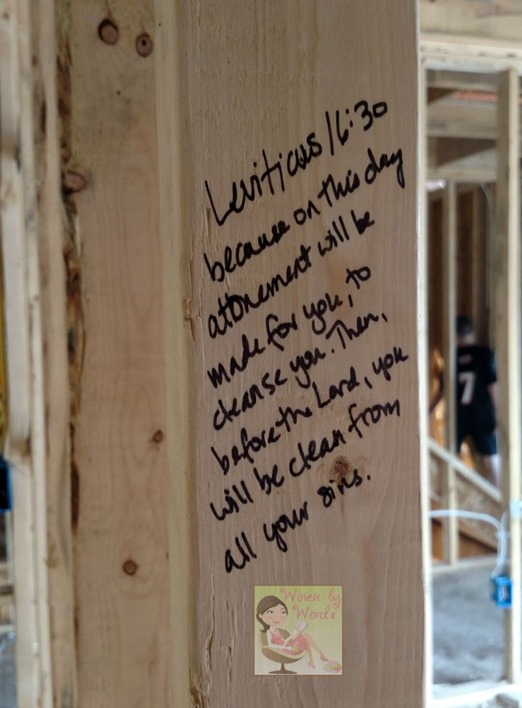 Leviticus 16:30
because on this day
attonement will be
made for you, to
cleanse you. Then,
before the Lord, you
will be clean from
all your sins.
7
Woven by
Words